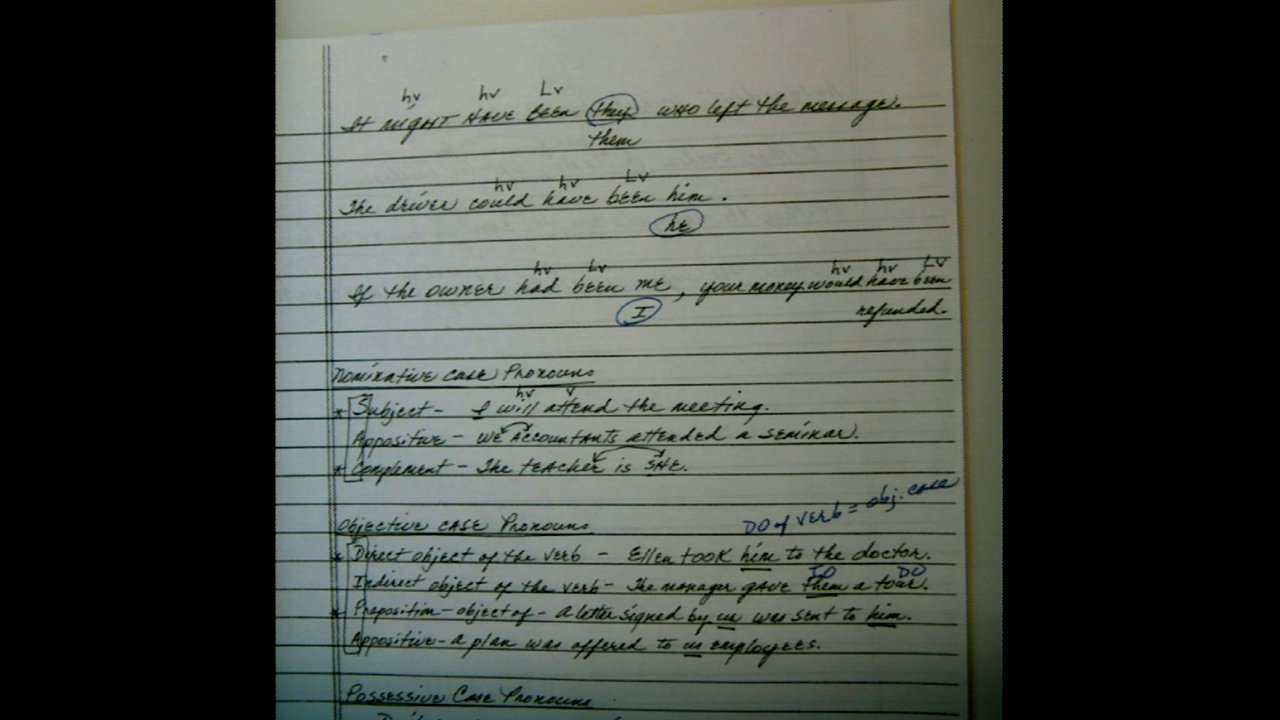 hv hv Lv
It might have been they who left the message.
them
hv hv Lv
The driver could have been him.
he
hv Lv hv hv LV
If the owner had been me, your money would have been
I refunded.
Nominative Case Pronouns
hv v
* Subject - I will attend the meeting.
Appositive - We accountants attended a seminar.
* Complement - The teacher is SHE.
DO of verb = obj. case
Objective Case Pronouns
* Direct object of the verb - Ellen took him to the doctor.
IO DO
Indirect object of the verb - The manager gave them a tour.
* Preposition - object of - A letter signed by us was sent to him.
Appositive - A plan was offered to us employees.
Possessive Case Pronouns